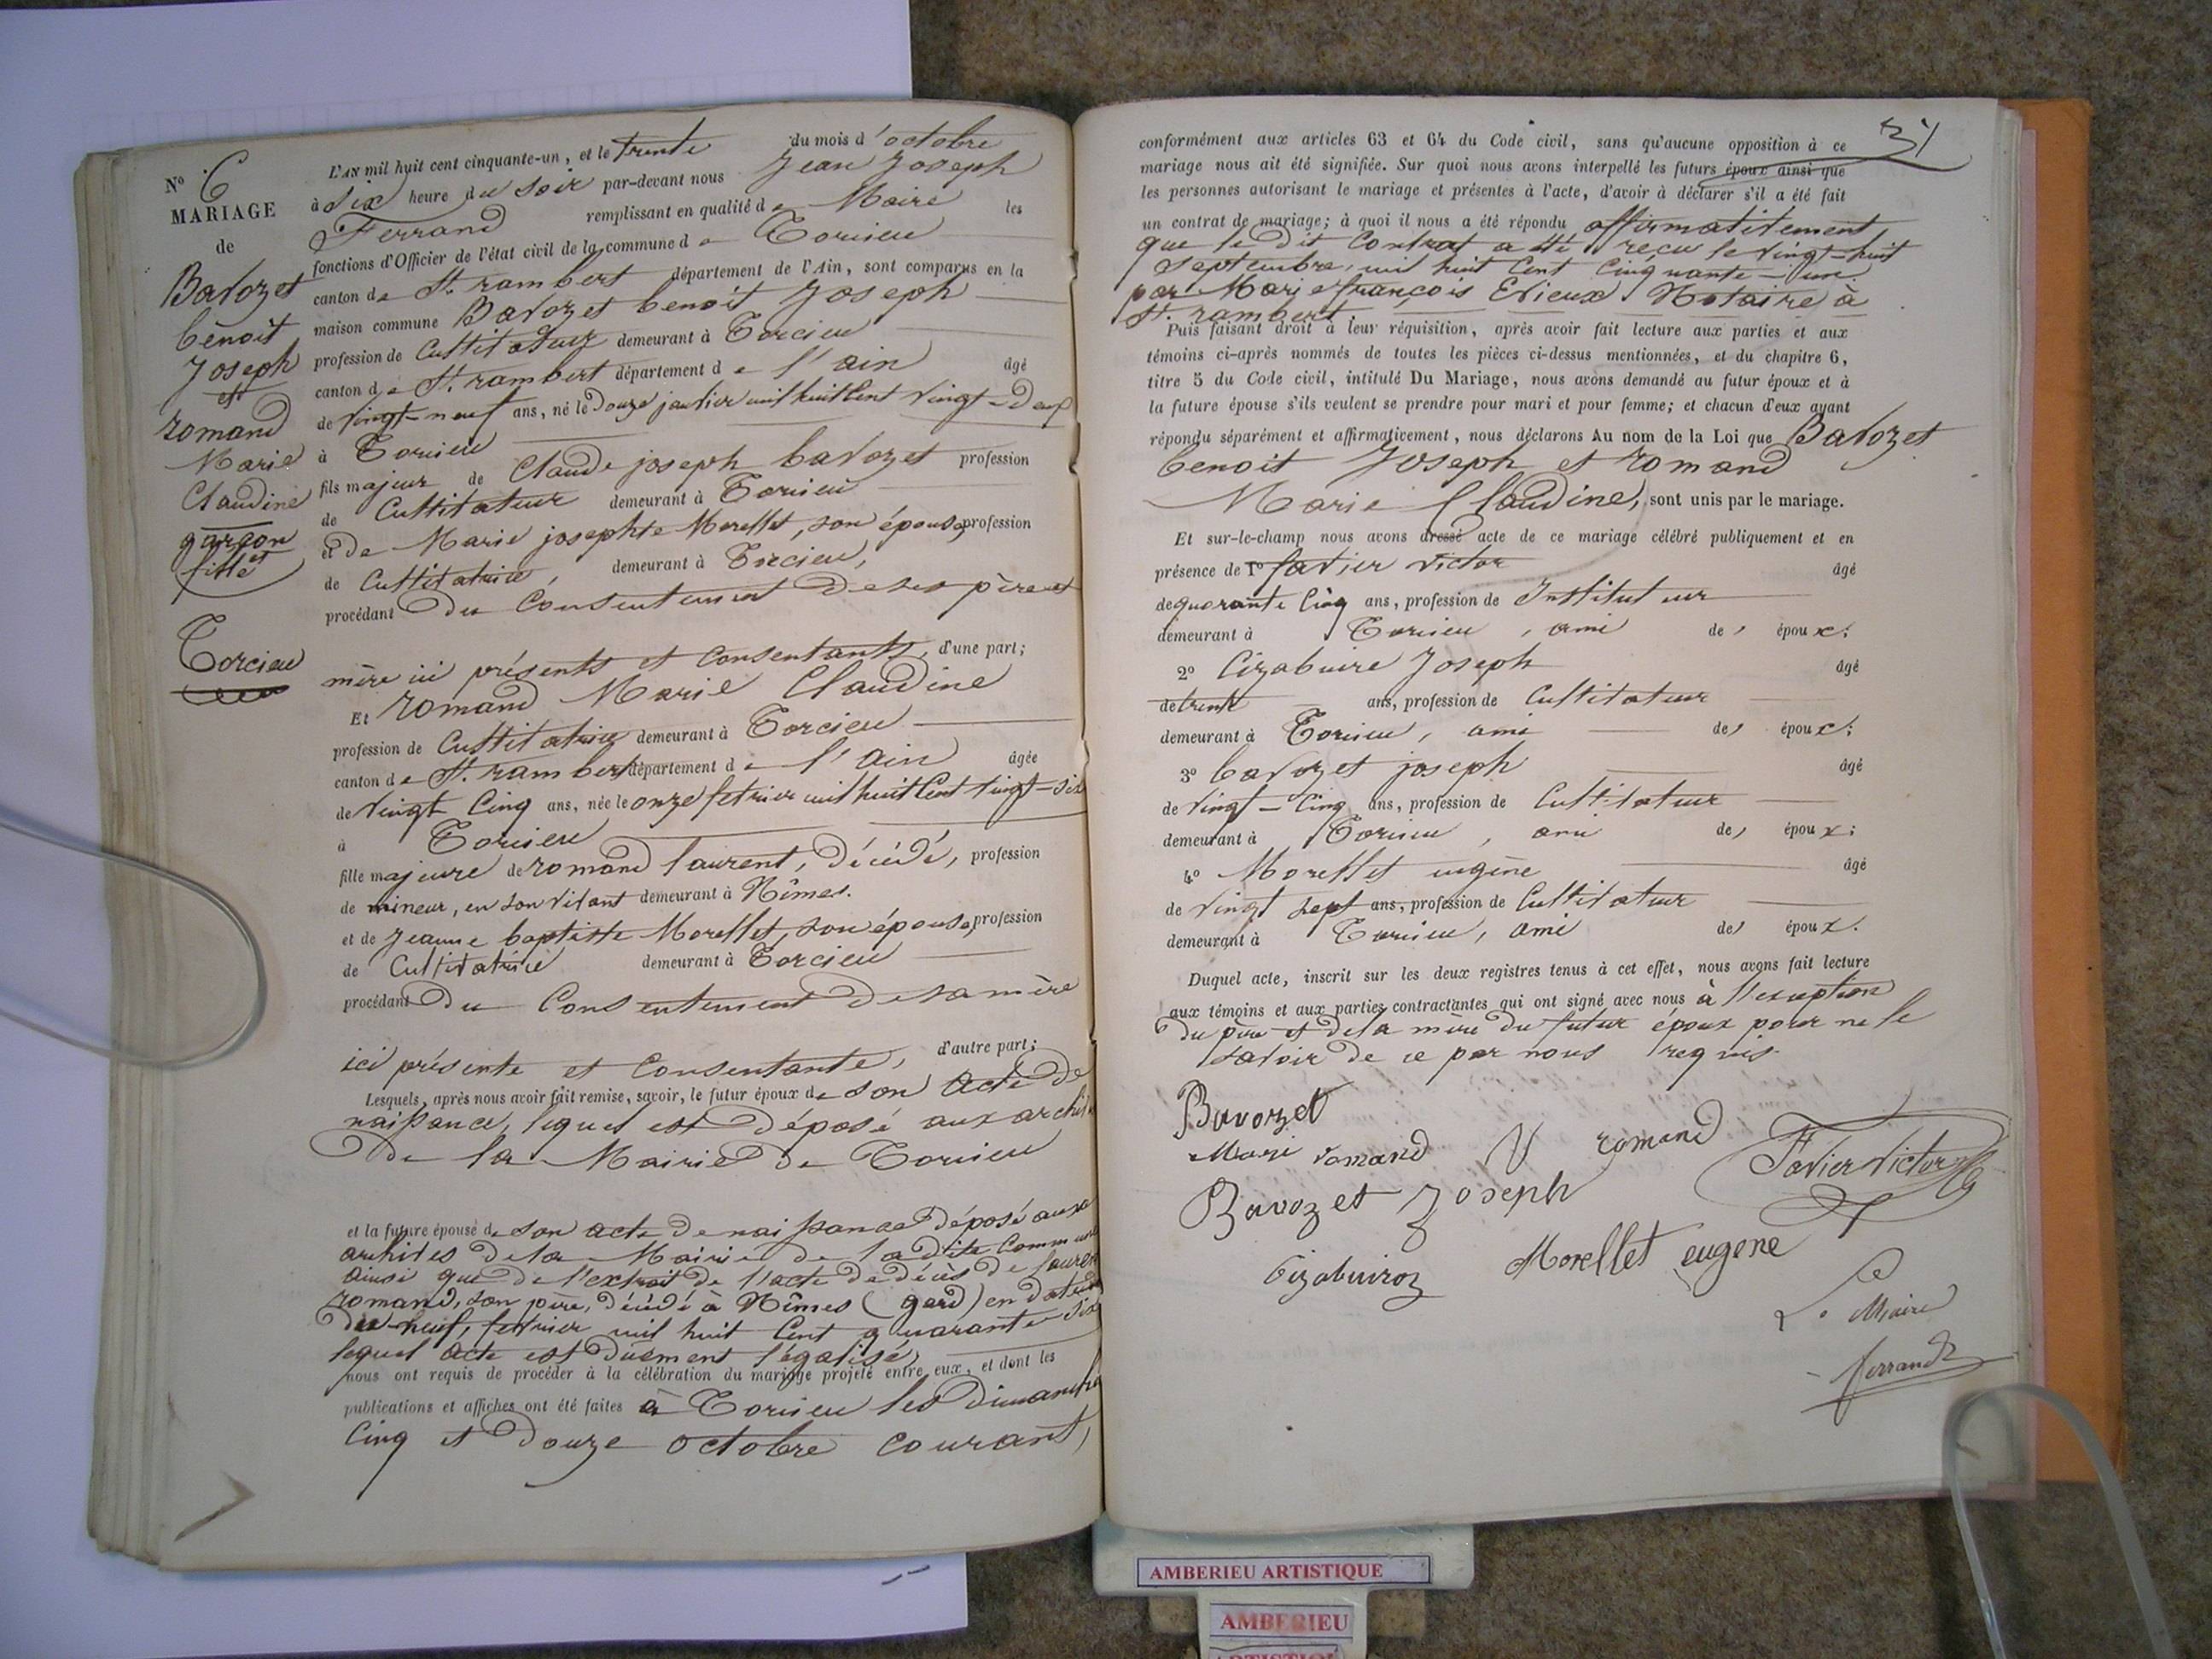 Nº 6
MARIAGE
de
Bavozet
benoît
Joseph
et
romand
Marie
Claudine
garçon
et
fille
Torcieu
L'AN mil huit cent cinquante-un, et le trente du mois d'octobre
à six heure du soir par-devant nous Jean Joseph
Ferrand remplissant en qualité de Maire les
fonctions d'Officier de l'état civil de la commune de Torcieu
canton de St. rambert département de l'Ain, sont comparus en la
maison commune Bavozet benoit Joseph
profession de Cultivateur demeurant à Torcieu
canton de St. rambert département de l'ain âgé
de vingt-neuf ans, né le Douze janvier mil huit Cent vingt-Deux
à Torcieu
fils majeur de Claude joseph bavozet profession
de Cultivateur demeurant à Torcieu
et de Marie josephte Morellet, son épouse, profession
de Cultivatrice, demeurant à Torcieu,
procédant Du Consentement De ses père et
mère ici présents et Consentants, d'une part;
Et romand Marie Claudine
profession de Cultivatrice demeurant à Torcieu
canton de St. rambert département de l'ain âgée
de vingt Cinq ans, née le onze fevrier mil huit Cent vingt-six
à Torcieu
fille majeure de romand laurent, Décédé, profession
de mineur, en son vivant demeurant à Nîmes.
et de Jeanne baptiste Morellet, son épouse, profession
de Cultivatrice demeurant à Torcieu
procédant Du Consentement De sa mère
ici présente et Consentante, d'autre part;
Lesquels, après nous avoir fait remise, savoir, le futur époux de son Acte de
naissance, lequel est Déposé aux archives
De la Mairie De Torcieu
et la future épouse de son acte De naissance Déposé aux
archives De la Mairie De la Dite Commune
Ainsi que De l'extrait De l'acte De Décès De laurent
romand, son père, Décédé à Nîmes (gard) en Date du
Dix-neuf, fevrier mil huit Cent quarante six
lequel Acte est Dûement légalisé,
nous ont requis de procéder à la célébration du mariage projeté entre eux, et dont les
publications et affiches ont été faites à Torcieu les Dimanches
Cinq et Douze octobre courant,
31
conformément aux articles 63 et 64 du Code civil, sans qu'aucune opposition à ce
mariage nous ait été signifiée. Sur quoi nous avons interpellé les futurs époux ainsi que
les personnes autorisant le mariage et présentes à l'acte, d'avoir à déclarer s'il a été fait
un contrat de mariage; à quoi il nous a été répondu affirmativement
que le Dit Contrat a été reçu le vingt-huit
septembre, mil huit Cent Cinquante-un
par Marie françois Evieux Notaire à
St. rambert.
Puis faisant droit à leur réquisition, après avoir fait lecture aux parties et aux
témoins ci-après nommés de toutes les pièces ci-dessus mentionnées, et du chapitre 6,
titre 5 du Code civil, intitulé Du Mariage, nous avons demandé au futur époux et à
la future épouse s'ils veulent se prendre pour mari et pour femme; et chacun d'eux ayant
répondu séparément et affirmativement, nous déclarons Au nom de la Loi que Bavozet
benoit Joseph et romand
Marie Claudine, sont unis par le mariage.
Et sur-le-champ nous avons dressé acte de ce mariage célébré publiquement et en
présence de 1º favier victor âgé
de quarante Cinq ans, profession de Instituteur
demeurant à Torcieu, ami de, époux;
2º Cizabuire Joseph âgé
de trente ans, profession de Cultivateur
demeurant à Torcieu, ami de, époux;
3º bavozet joseph âgé
de vingt-Cinq ans, profession de Cultivateur
demeurant à Torcieu, ami de, époux;
4º Morellet eugène âgé
de vingt sept ans, profession de Cultivateur
demeurant à Torcieu, ami de, époux.
Duquel acte, inscrit sur les deux registres tenus à cet effet, nous avons fait lecture
aux témoins et aux parties contractantes qui ont signé avec nous à l'exception
Du père et De la mère Du futur époux pour ne le
savoir De ce par nous requis.
Bavozet
Mari romand romand Favier Victor
Bavozet Joseph
Cizabuiroz Morellet eugene
Le Maire
ferrand
AMBERIEU ARTISTIQUE
AMBERIEU
ARTISTIQUE